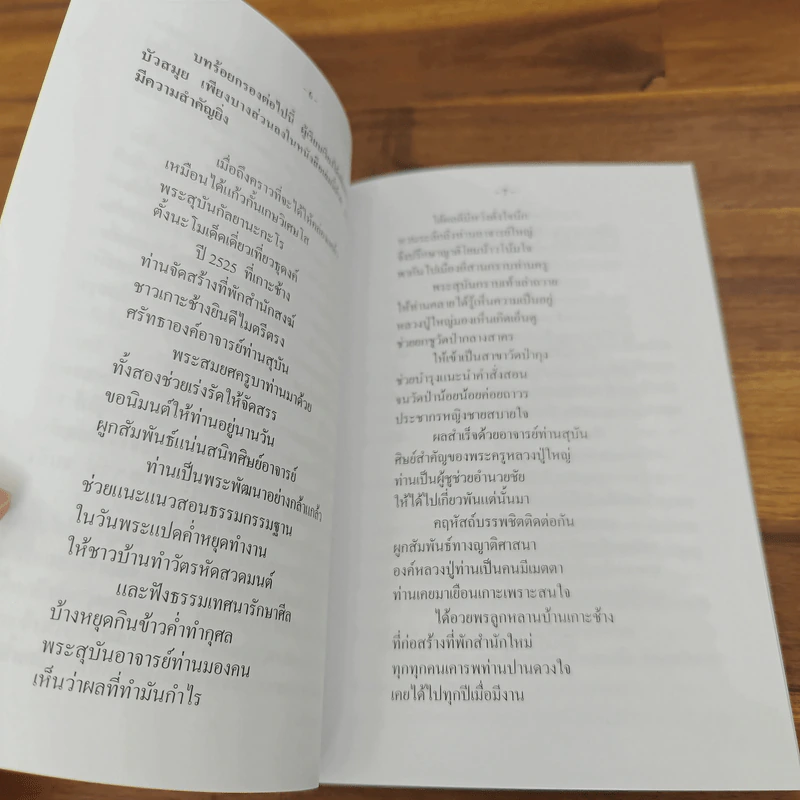 - ๕ -
บทร้อยกรองต่อไปนี้
บัวสมุย เพียงบางส่วนลงในหนังสือ
มีความสำคัญยิ่ง
เมื่อถึงคราวที่จะได้ให้
เหมือนได้แก้วกั้นเกษวิเศษโส
พระสุบันกัลยานะกะโร
ตั้งนะโมเด็ดเดี่ยวเที่ยวธุดงค์
ปี 2525 ที่เกาะช้าง
ท่านจัดสร้างที่พักสำนักสงฆ์
ชาวเกาะช้างยินดีไมตรีตรง
ศรัทธาองค์อาจารย์ท่านสุบัน
พระสมยศครูบาท่านมาด้วย
ทั้งสองช่วยเร่งรัดให้จัดสรร
ขอนิมนต์ให้ท่านอยู่นานวัน
ผูกสัมพันธ์แน่นสนิทศิษย์อาจารย์
ท่านเป็นพระพัฒนาอย่างกล้าแกล้ว
ช่วยแนะแนวสอนธรรมกรรมฐาน
ในวันพระแปดค่ำหยุดทำงาน
ให้ชาวบ้านทำวัตรหัดสวดมนต์
และฟังธรรมเทศนารักษาศีล
บ้างหยุดกินข้าวค่ำทำกุศล
พระสุบันอาจารย์ท่านมองคน
เห็นว่าผลที่ทำมันกำไร
ได้ผลดีมีหวังตั้งใจนึก
อาจารย์ใหญ่
จึงปรึกษาญาติโยมน้าวโน้มใจ
พากันไปเมืองอีสานกราบท่านครู
พระสุบันกราบเท้าเล่าถวาย
ให้ท่านคลายได้รู้เห็นความเป็นอยู่
หลวงปู่ใหญ่มองเห็นเกิดเอ็นดู
ช่วยยกชูวัดป่ากลางสาคร
ให้เข้าเป็นสาขาวัดป่ากุง
ช่วยบำรุงแนะนำคำสั่งสอน
จนวัดป่าน้อยน้อยค่อยถาวร
ประชากรหญิงชายสบายใจ
ผลสำเร็จด้วยอาจารย์ท่านสุบัน
ศิษย์สำคัญของพระครูหลวงปู่ใหญ่
ท่านเป็นผู้ชูช่วยอำนวยชัย
ให้ได้ไปเกี่ยวพันแต่นั้นมา
คฤหัสถ์บรรพชิตติดต่อกัน
ผูกสัมพันธ์ทางญาติศาสนา
องค์หลวงปู่ท่านเป็นคนมีเมตตา
ท่านเคยมาเยือนเกาะเพราะสนใจ
ได้อวยพรลูกหลานบ้านเกาะช้าง
ที่ก่อสร้างที่พักสำนักใหม่
ทุกทุกคนเคารพท่านปานดวงใจ
เคยได้ไปทุกปีเมื่อมีงาน